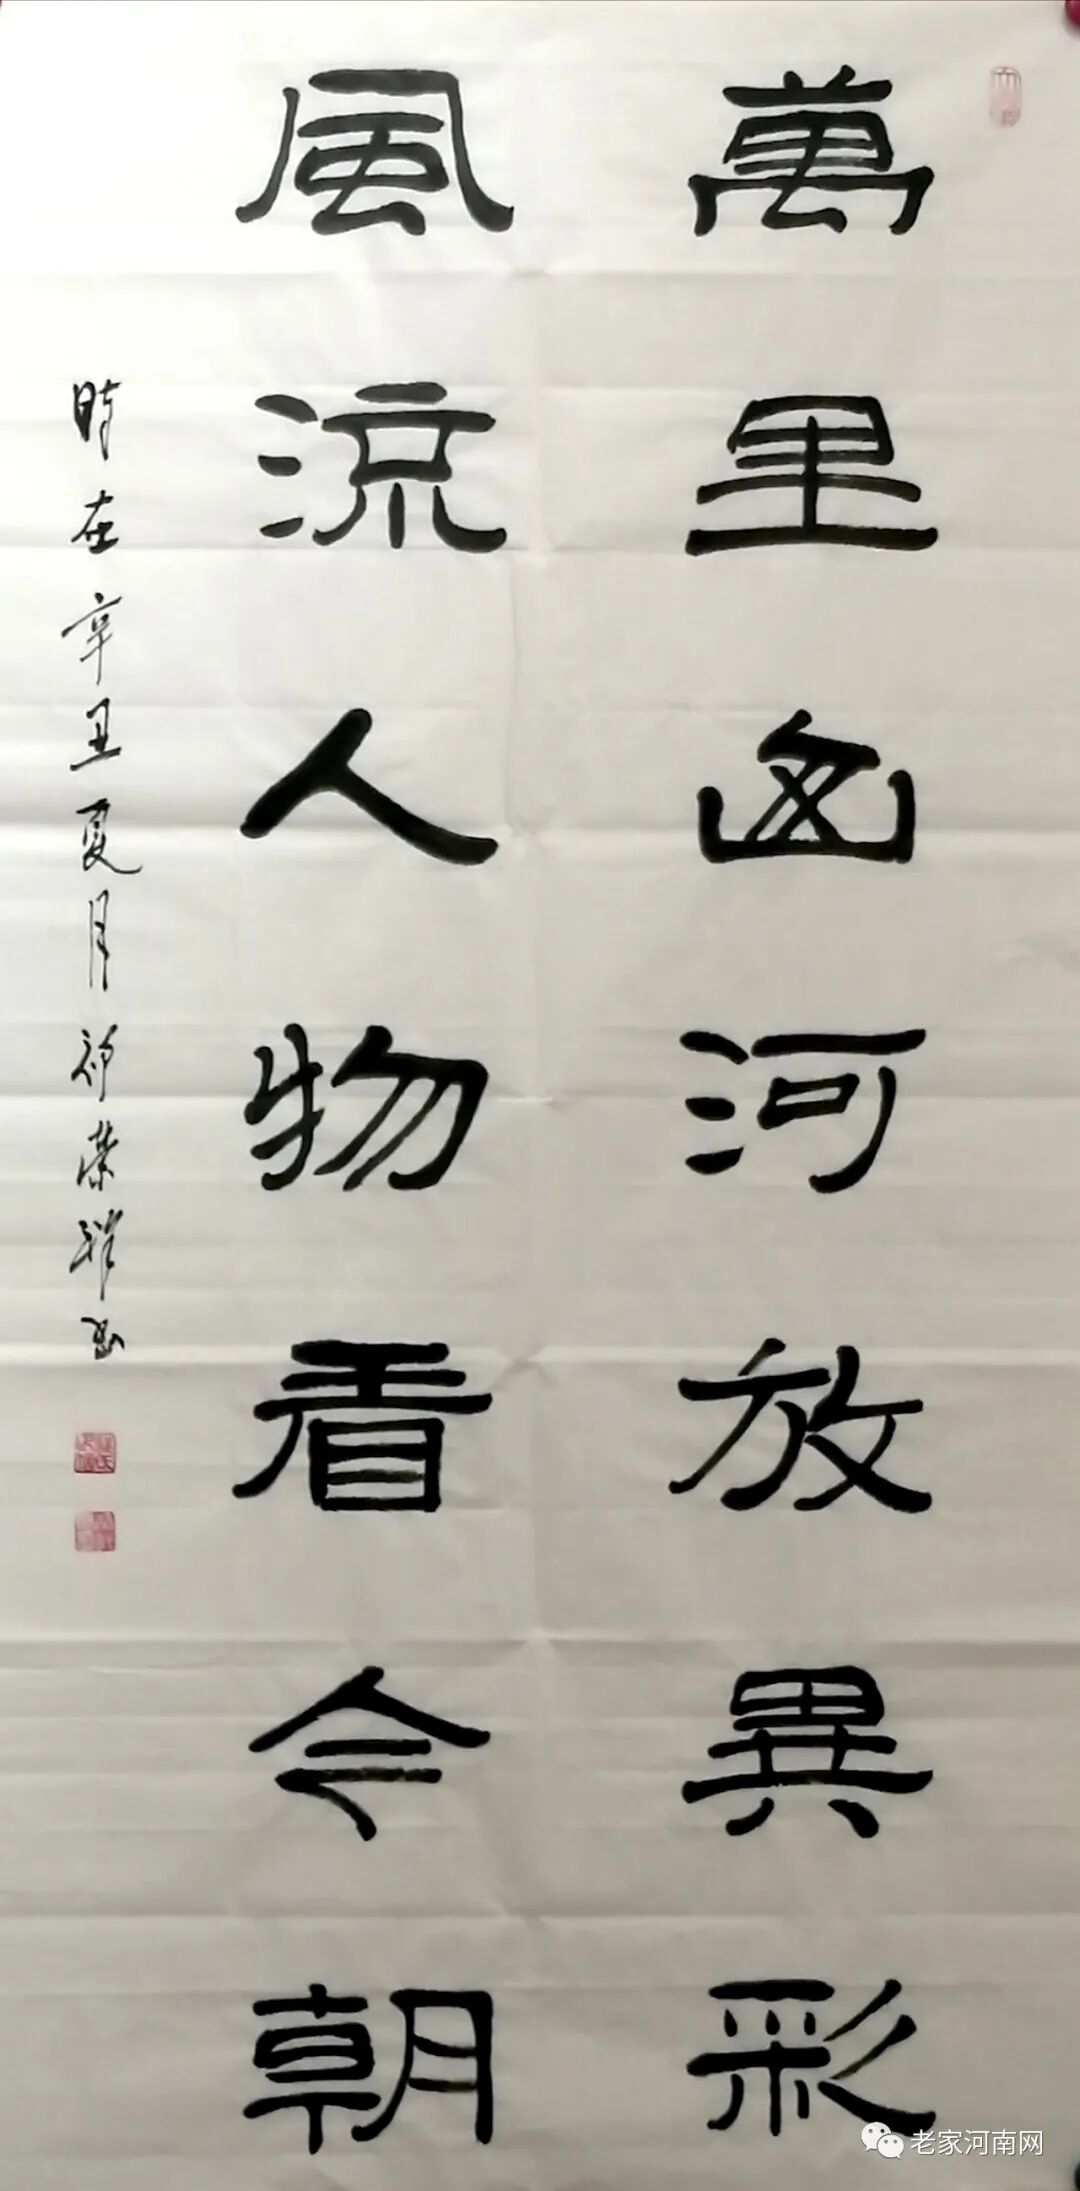 萬里山河放異彩
風流人物看今朝
時在辛丑夏月祁榮祥书
老家河南网